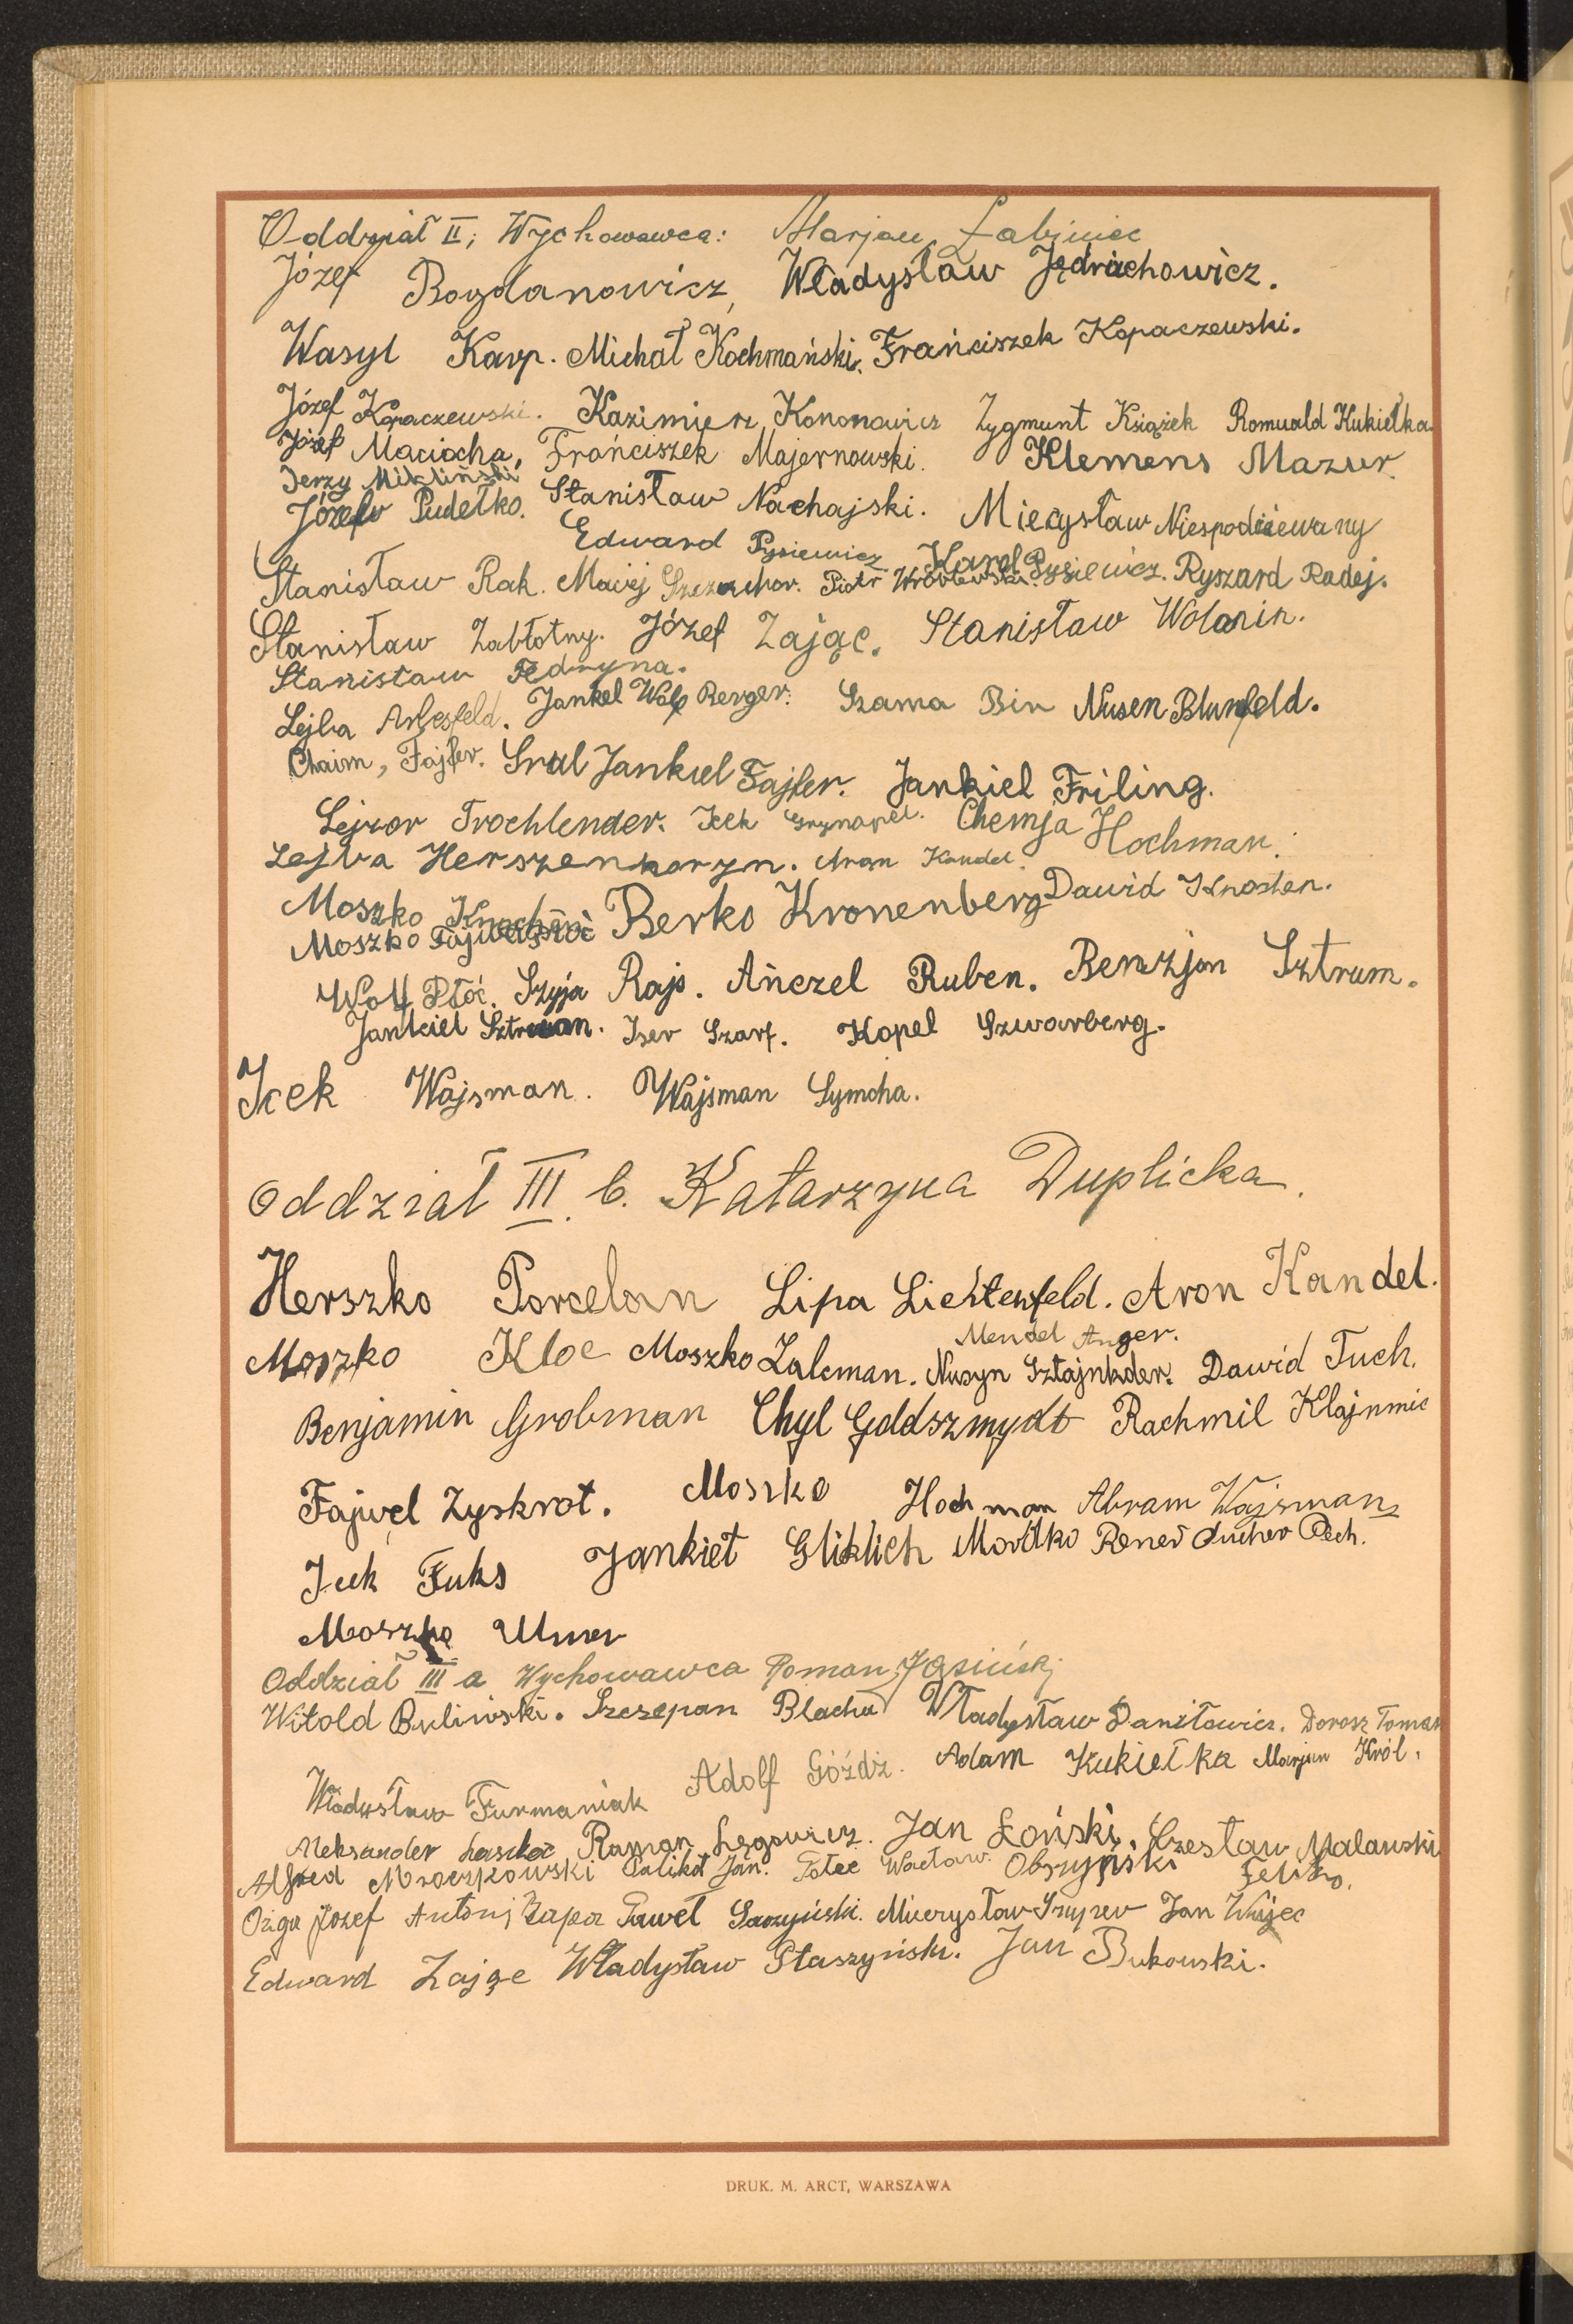 Oddział II; Wychowawca: Marjan Łabiniec
Józef Bogdanowicz, Władysław Jędrichowicz.
Wasyl Karp. Michał Kochmański. Frańciszek Kopaczewski.
Józef Kopaczewski. Kazimierz Kononowicz Zygmunt Książek Romuald Kukiełka
Józef Maciocha, Frańciszek Majernowski. Klemens Mazur
Jerzy Mikliński
Józef Pudełko. Stanisław Nachajski. Mieczysław Niespodziewany
Edward Pysiewicz Karol Pysiewicz. Ryszard Radej.
Stanisław Rak. Maciej Piotr Wróblewski.
Stanisław Zabłotny. Józef Zając. Stanisław Wolanin.
Stanisław Fedryna.
Lejba Arbesfeld. Jankel Wolf Berger. Szama Bin Nusen Blumfeld.
Chaim, Fajfer. Srul Jankiel Fajfer. Jankiel Friling.
Lejzor Trochlender. Icek Grynapel. Chemja Hochman.
Lejba Herszenhorn. Aron Kandel.
Moszko Knochen Berko Kronenberg Dawid Knosten.
Moszko
Wolf Płoć. Szyja Rajs. Ańczel Ruben. Benzjon Sztrum.
Jankiel Sztruan. Iser Szarf. Kopel Szwarberg.
Icek Wajsman. Wajsman Symcha.
Oddział III b. Katarzyna Duplicka.
Herszko Porcelan Lipa Lichtenfeld. Aron Kandel.
Mendel Anger.
Moszko Kloc Moszko Zalcman. Nusyn Sztajnkder. Dawid Tuch.
Benjamin Grobman Chyl Goldszmydt Rachmil Klajnmic
Fajwel Zyskrot. Moszko Hochman Abram Wajsman
Icek Fuks Jankiel Gliklich Mordko Rener Pech.
Moszko Ulmer
Oddział III a Wychowawca Roman Jasiński
Witold Buliński. Szczepan Blacha Władysław Daniłowicz. Dorosz Toman
Władysław Furmaniak Adolf Góźdź. Adam Kukiełka Marjan Król.
Aleksander Roman Lęgowicz. Jan Łoński. Czesław Malawski
Alfred Mroczkowski Palikot Jan. Potec Wacław. Obszyński Feliks.
Ożga Józef Antoni Zapa Paweł Saczyński. Mieczysław Jan Wójec
Edward Zając Władysław Staszyński. Jan Bukowski.
DRUK. M. ARCT, WARSZAWA